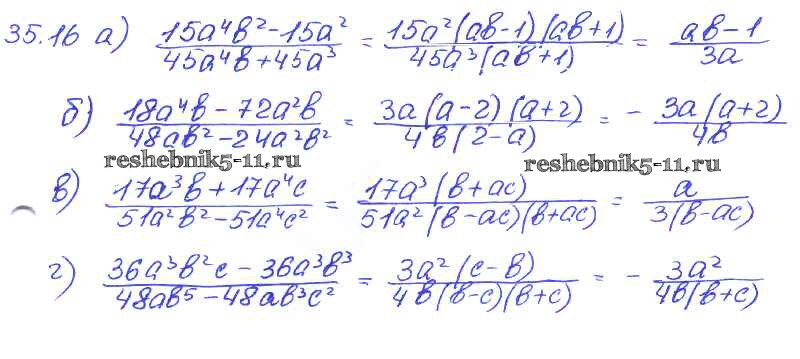 35.16 а) (15a⁴b² - 15a²)/(45a⁴b + 45a³) = (15a²(ab-1)(ab+1))/(45a³(ab+1)) = (ab-1)/(3a)
б) (18a⁴b - 72a²b)/(48ab² - 24a²b²) = (3a(a-2)(a+2))/(4b(2-a)) = - (3a(a+2))/(4b)
reshebnik5-11.ru reshebnik5-11.ru
в) (17a³b + 17a⁴c)/(51a²b² - 51a⁴c²) = (17a³(b+ac))/(51a²(b-ac)(b+ac)) = a/(3(b-ac))
г) (36a³b²c - 36a³b³)/(48ab⁵ - 48ab³c²) = (3a²(c-b))/(4b(b-c)(b+c)) = - (3a²)/(4b(b+c))